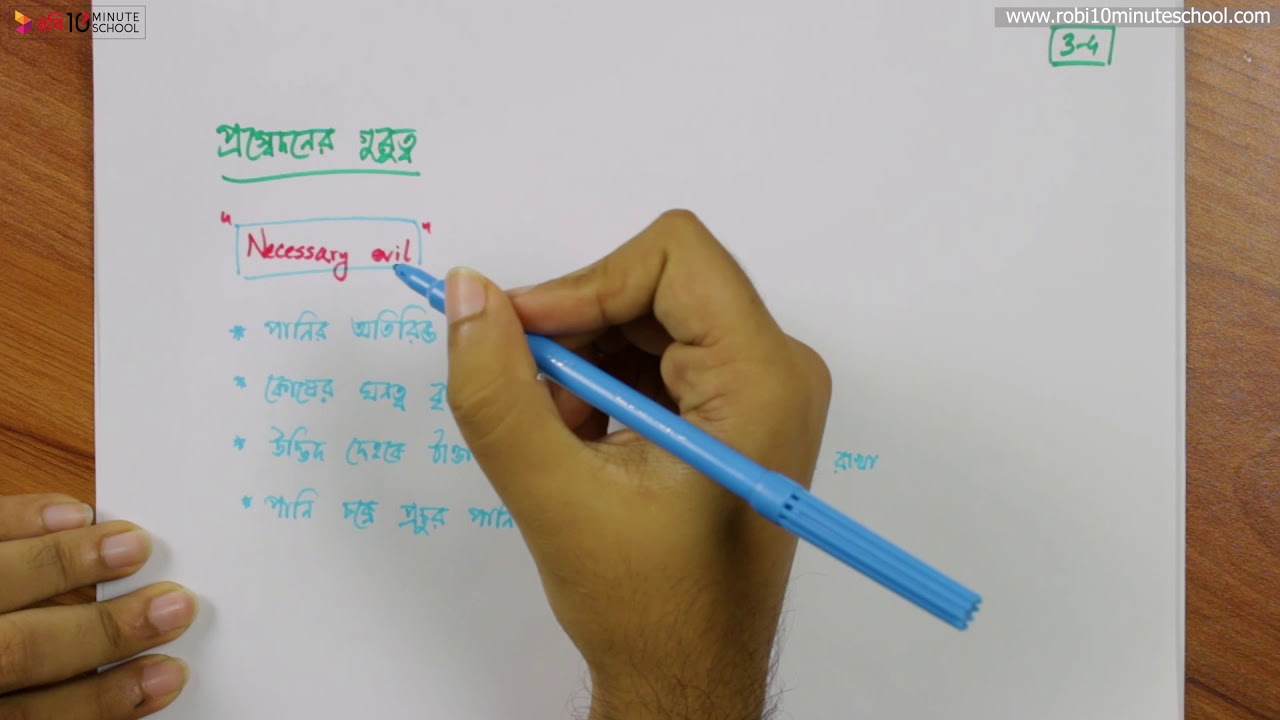 রবি 10 MINUTE SCHOOL
www.robi10minuteschool.com
3-4
প্রস্বেদনের গুরুত্ব
"Necessary evil"
* পানির অতিরিক্ত
* কোষের ঘনত্ব বৃ
* উদ্ভিদ দেহকে ঠাণ্ডা রাখা
* পানি চক্রে প্রচুর পানি